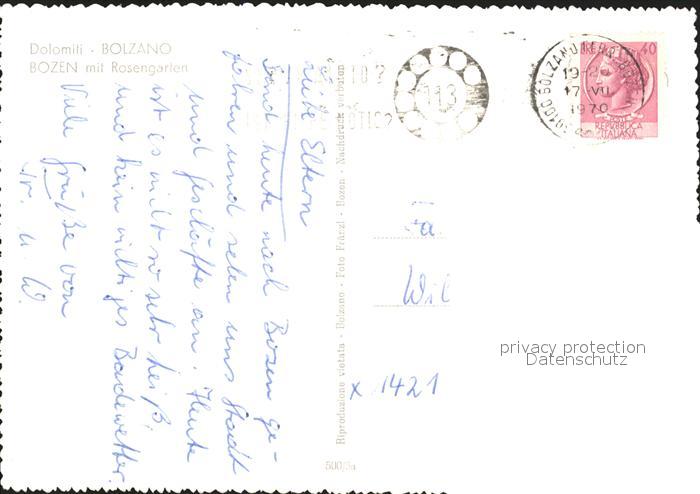 Dolomiti - BOLZANO
BOZEN mit Rosengarten
Eltern
Sind heute nach Bozen ge-
fahren und sehen uns Stadt
und Geschäfte an. Heute
ist es nicht so sehr heiß
und kein richtiges Badewetter.
Viele Grüße von
u. W.
Riproduzione vietata - Bolzano - Foto Fränzl - Bozen - Nachdruck verboten
500/3a
113
39100 BOLZANO
19-20
17 VII
1970
40
REPVBBLICA
ITALIANA
Fa.
Wil
x 1421
privacy protection
Datenschutz